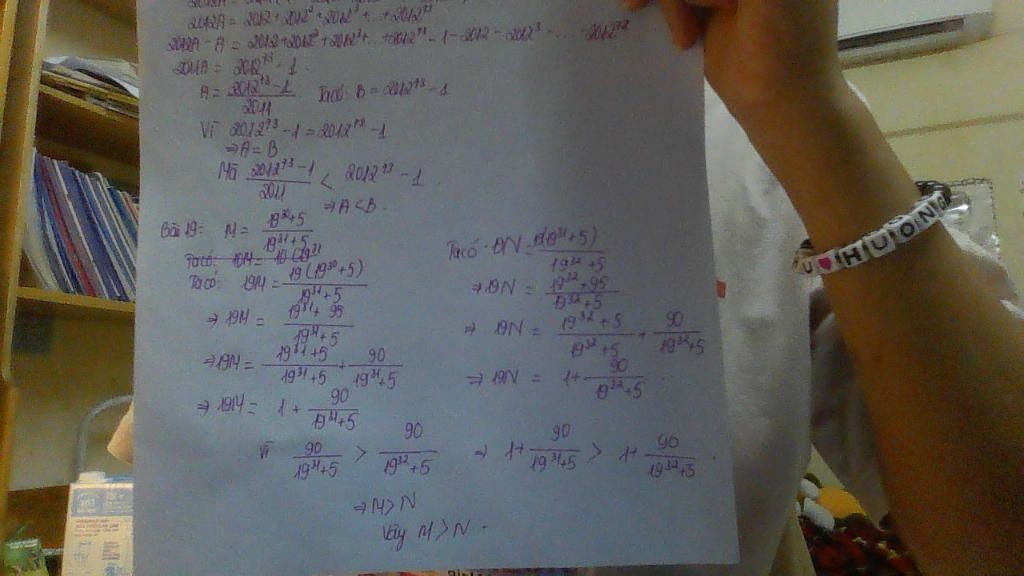 2012A = 2012 + 2012² + 2012³ + ... + 2012⁷³
2012A - A = 2012 + 2012² + 2012³ + ... + 2012⁷³ - 1 - 2012 - 2012³ - ... - 2012⁷²
2011A = 2012⁷³ - 1
A = (2012⁷³ - 1)/2011 Ta có: B = 2012⁷³ - 1
Vì 2012⁷³ - 1 = 2012⁷³ - 1
⇒ A = B
Mà (2012⁷³ - 1)/2011 < 2012⁷³ - 1.
⇒ A < B.
Bài 19: M = (19³⁰ + 5)/(19³¹ + 5)
Ta có: 19M = 19(19³⁰ + 5)/(19³¹ + 5)
⇒ 19M = (19³¹ + 95)/(19³¹ + 5)
⇒ 19M = (19³¹ + 5)/(19³¹ + 5) + 90/(19³¹ + 5)
⇒ 19M = 1 + 90/(19³¹ + 5)
Ta có: 19N = 19(19³¹ + 5)/(19³² + 5)
⇒ 19N = (19³² + 95)/(19³² + 5)
⇒ 19N = (19³² + 5)/(19³² + 5) + 90/(19³² + 5)
⇒ 19N = 1 + 90/(19³² + 5).
Vì 90/(19³¹ + 5) > 90/(19³² + 5) ⇒ 1 + 90/(19³¹ + 5) > 1 + 90/(19³² + 5).
⇒ M > N
Vậy M > N.
U ♥ HUONG